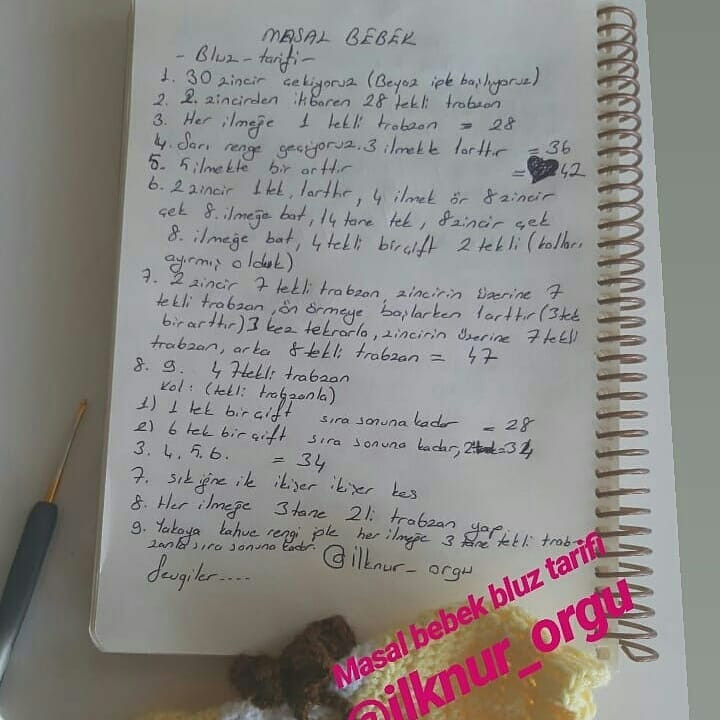 MASAL BEBEK
- Bluz - tarifi -
1. 30 zincir çekiyoruz (Beyaz iple başlıyoruz)
2. 2. zincirden itibaren 28 tekli trabzan
3. Her ilmeğe 1 tekli trabzan = 28
4. Sarı renge geçiyoruz. 3 ilmekte 1arttır = 36
5. 5 ilmekte bir arttır = 42
6. 2 zincir 1tek, 1arttır, 4 ilmek ör 8 zincir
çek 8. ilmeğe bat, 14 tane tek, 8zincir çek
8. ilmeğe bat, 4 tekli bir çift 2 tekli (kolları
ayırmış olduk)
7. 2 zincir 7 tekli trabzan, zincirin üzerine 7
tekli trabzan, ön örmeye başlarken 1arttır (3tek
bir arttır) 3 kez tekrarla, zincirin üzerine 7tekli
trabzan, arka 8 tekli trabzan = 47
8. 9. 47tekli trabzan
Kol: (tekli trabzanla)
1) 1 tek bir çift sıra sonuna kadar = 28
2) 6 tek bir çift sıra sonuna kadar, = 34
3. 4. 5. 6. = 34
7. sık iğne ile ikişer ikişer kes
8. Her ilmeğe 3 tane 2li trabzan yap
9. Yakaya kahve rengi iple her ilmeğe 3 tane tekli trab-
zanla sıra sonuna kadar.
@ilknur_orgu
Sevgiler....
Masal bebek bluz tarifi
@ilknur_orgu